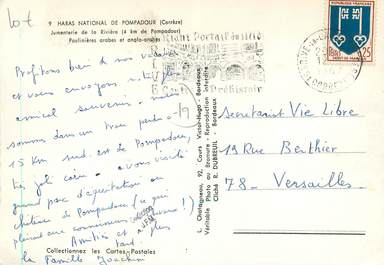 lot
9 HARAS NATIONAL DE POMPADOUR (Corrèze)
Jumenterie de la Rivière (4 km de Pompadour)
Poulinières arabes et anglo-arabes
Profitons bien de nos vacances
et vous envoyons notre plus
amical souvenir. Nous
sommes dans un trou perdu à
15 Km sud. est de Pompadour,
très joli coin - avons visité
grand parc d'équitation au
château de Pompadour (ce qui
plairait aux
Amitiés et à plus
tard.
la Famille Joachim
Collectionnez les Cartes Postales
L. Chatagneau, 92, Cours Victor-Hugo - Bordeaux
Véritable Photo au Bromure - Reproduction interdite
Cliché R. DUBREUIL - Bordeaux
Portail
Préhistoire
REPUBLIQUE FRANÇAISE
25
MONT-DE-MARSAN
CORREZE
Secretariat Vie Libre
19 Rue Berthier
78 - Versailles.